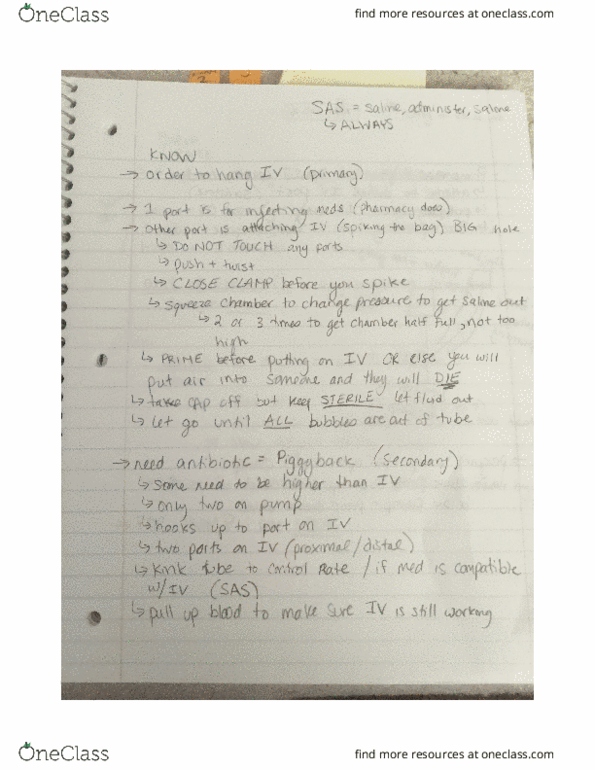 OneClass
find more resources at oneclass.com
SAS = saline, administer, saline
↳ ALWAYS
KNOW
→ order to hang IV (primary)
→ 1 port is for injecting meds (pharmacy does)
→ other port is attaching IV (spiking the bag) BIG hole
↳ DO NOT TOUCH any ports
↳ push + twist
↳ CLOSE CLAMP before you spike
↳ squeeze chamber to change pressure to get saline out
↳ 2 or 3 times to get chamber half full, not too
high
↳ PRIME before putting on IV OR else you will
put air into someone and they will DIE
↳ take CAP off but keep STERILE let fluid out
↳ let go until ALL bubbles are out of tube
→ need antibiotic = Piggyback (secondary)
↳ some need to be higher than IV
↳ only two on pump
↳ hooks up to port on IV
↳ two ports on IV (proximal/distal)
↳ kink tube to control Rate / if med is compatible
w/IV (SAS)
↳ pull up blood to make sure IV is still working
OneClass
find more resources at oneclass.com